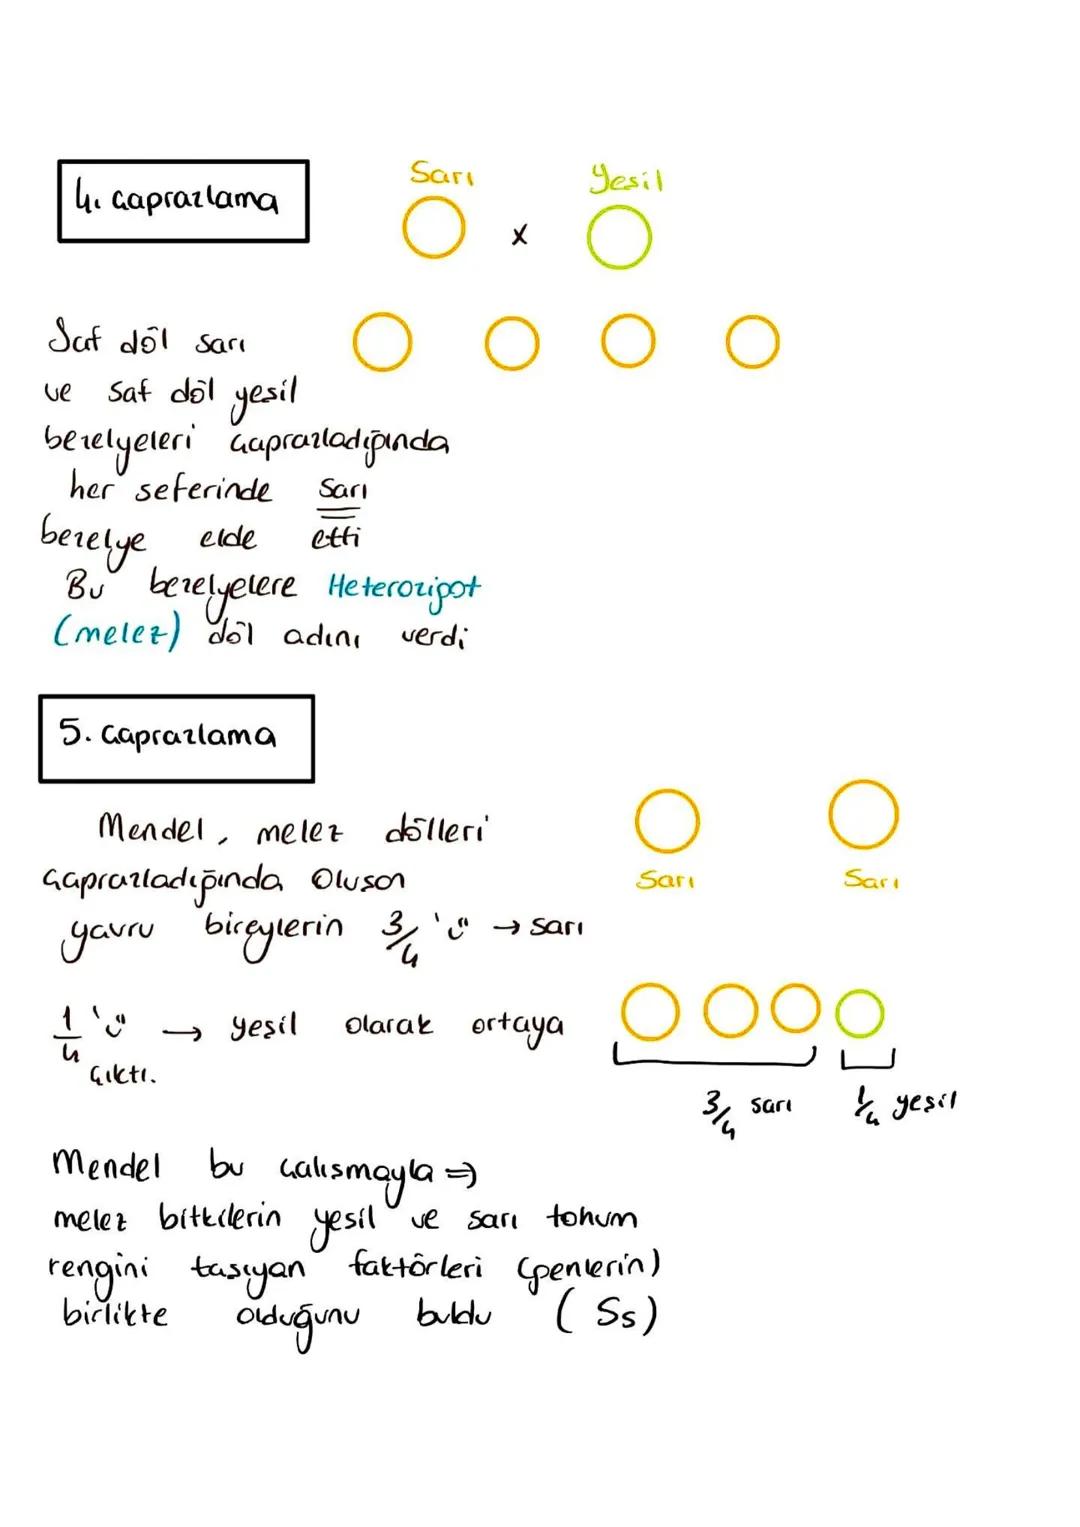 4. çaprazlama
Sarı
yesil
x
Saf döl sarı
ve saf döl yesil
bezelyeleri çaprazladığında
her seferinde sarı
bezelye elde etti
Bu bezelyelere Heterozigot
(melez) döl adını verdi
5. çaprazlama
Mendel, melez dölleri
çaprazladığında oluson
yavru bireylerin 3/4'ü → sarı
1/4'ü → yeşil olarak ortaya
çıktı.
Sarı
Sarı
3/4 sarı
1/4 yeşil
Mendel bu çalısmayla ⇒
melez bitkilerin yesil ve sarı tohum
rengini tasıyan faktörleri (genlerin)
birlikte olduğunu buldu (Ss)